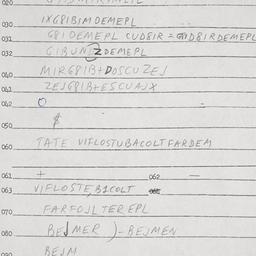 030.
IXG81BIMDEMEPL
031 G81 DEMEPL CUD81R = GID81RDEMEPL
032 GIBUNIZDEMEPL
040 MIRG81B+DOSCUZEJ
041 ZEJG81B+ESCUAJX
042 O
050
060 TATE VIFLOSTUBACOLTFARDEM
061 + 062 —
063 VIFLOSTE,BICOLT
070 FARFOJLTEREPL
080 BEJMER )-BEJMEN
090 BEJM